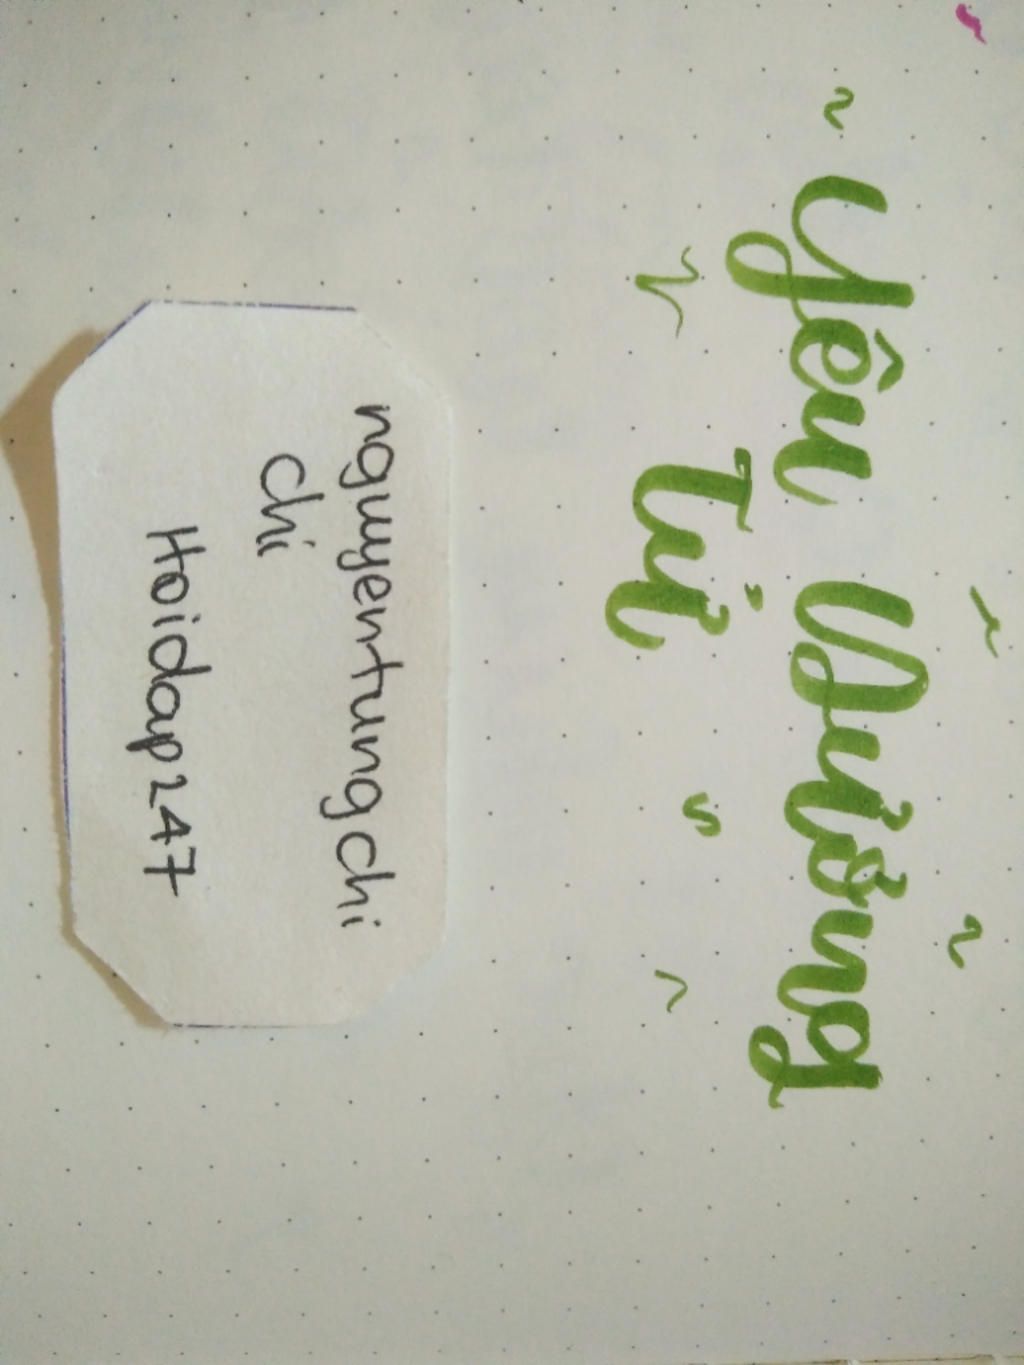 ~ Yêu Vương
Tử
nguyentungchi
chi
Hoidap247